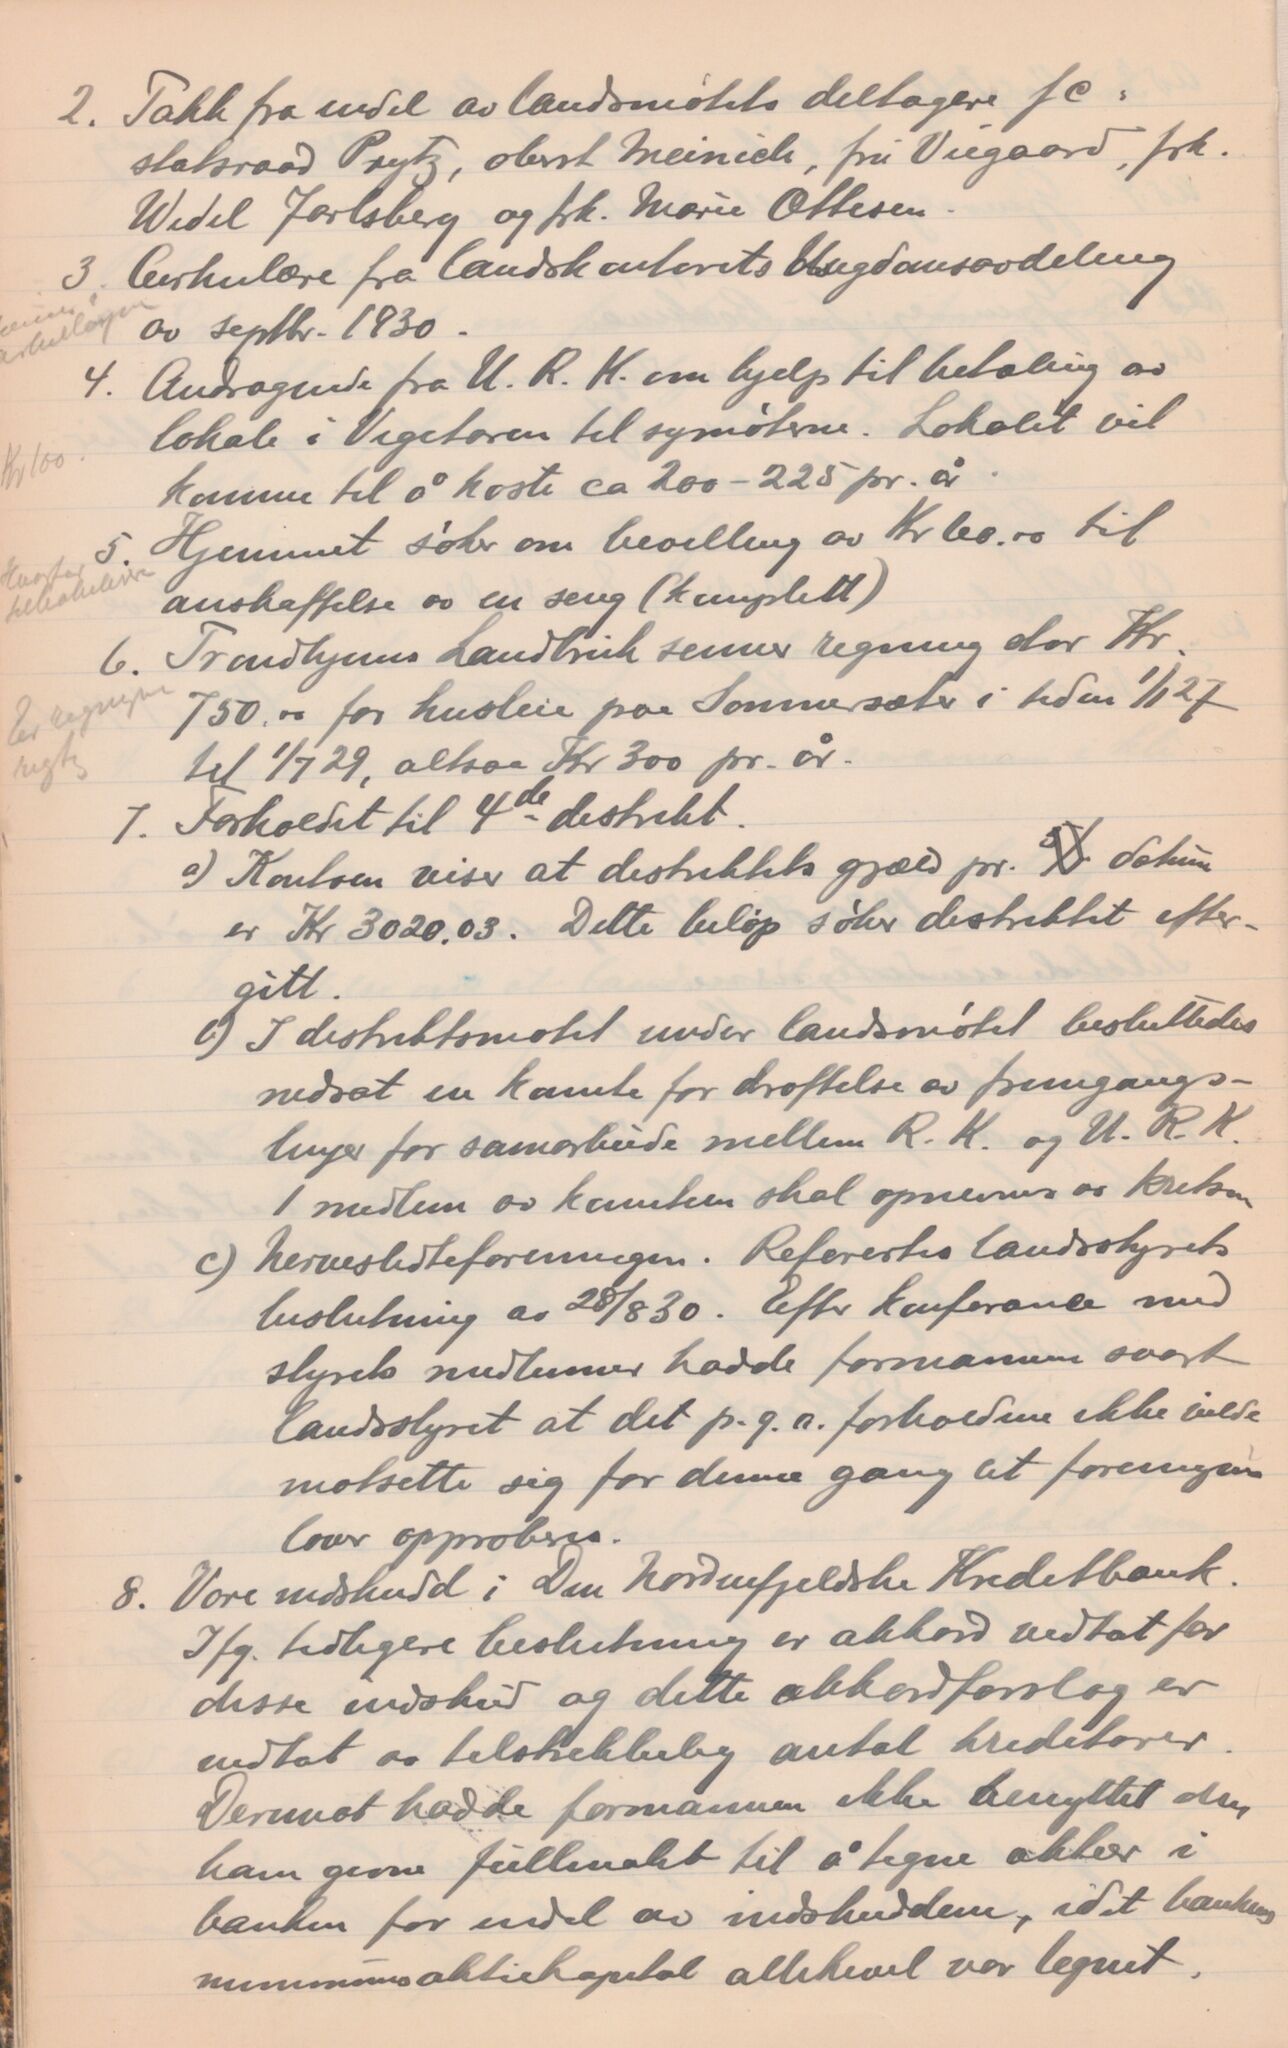 2. Takk fra endel av landsmötets deltagere fc:
statsraad Prytz, oberst Meinich, fru Viegaard, frk.
Wedel Jarlsberg og frk. Marie Ottesen.
3. Cirkulære fra landskontorets Ungdomsavdeling
av septbr. 1930.
4. Andragende fra U. R. K. om hjelp til betaling av
Kr 100.
lokale i Vegetaren til symöterne. Lokalet vil
komme til å koste ca 200 – 225 pr. år.
5. Hjemmet söker om bevilling av Kr 60.00 til
anskaffelse av en seng (komplett)
6. Trondhjems Landbruk senner regning stor Kr.
Er regningen
rigtig
750.00 for husleie paa Sommersæter i tiden 1/1 27
til 1/7 29, altsaa Kr 300 pr. år.
7. Forholdet til 4de distrikt.
a) Kontoen viser at distriktets gjæld pr. datum
er Kr 3020.03. Dette beløp söker distriktet efter-
gitt.
b) I distriktsmøtet under landsmötet besluttedes
nedsat en komite for drøftelse av fremgangs-
linjer for samarbeide mellem R. K. og U. R. K.
1 medlem av komiteen skal opnevnes av kretsen
c) Nervesliteforeningen. Refereertes landsstyrets
beslutning av 28/8 30. Efter konferance med
styrets medlemmer hadde formannen svart
landsstyret at det p. g. a. forholdene ikke vilde
motsette sig for denne gang at foreningens
lover approberes.
8. Vore indskudd i Den Nordenfjeldske Kreditbank.
Ifg. tidligere beslutning er akkord vedtat for
disse indskud og dette akkordforslag er
vedtat av tilstrekkelig antal kreditorer.
Derimot hadde formannen ikke benyttet den
ham givne fullmakt til å tegne aktier i
banken for endel av indskuddene, idet bankens
minimumsaktiekapital allikevel var tegnet.